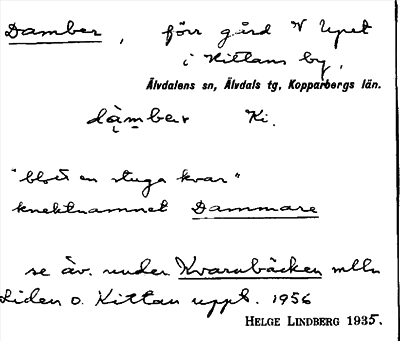 Damber, förr gård N Upet
i Kittans by,
Älvdalens sn, Älvdals tg, Kopparbergs län.
dàmber Ki.
"blott en stuga kvar"
knektnamnet Dammare
se äv. under Kvarnbäcken mlln
Liden o. Kittan uppt. 1956
HELGE LINDBERG 1935.